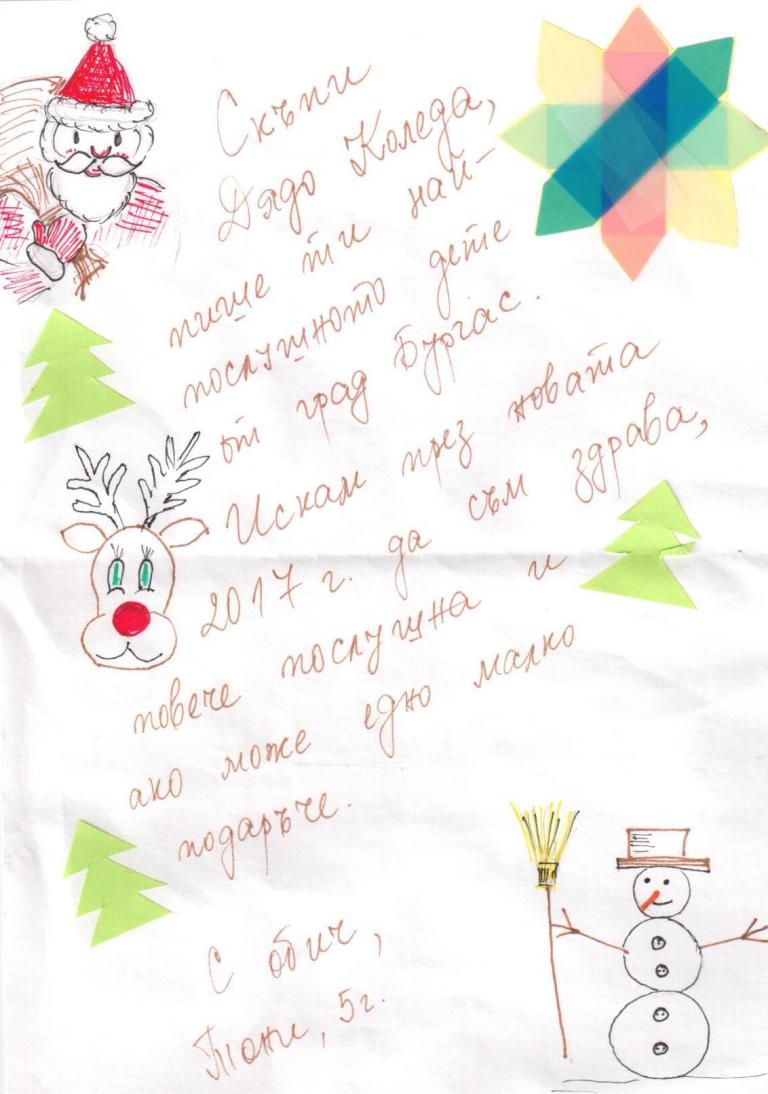 Скъпи
Дядо Коледа,
пише ти най-
послушното дете
от град Бургас.
Искам през новата
2017 г. да съм здрава,
повече послушна и
ако може едно малко
подаръче.
С обич,
Тони, 5г.